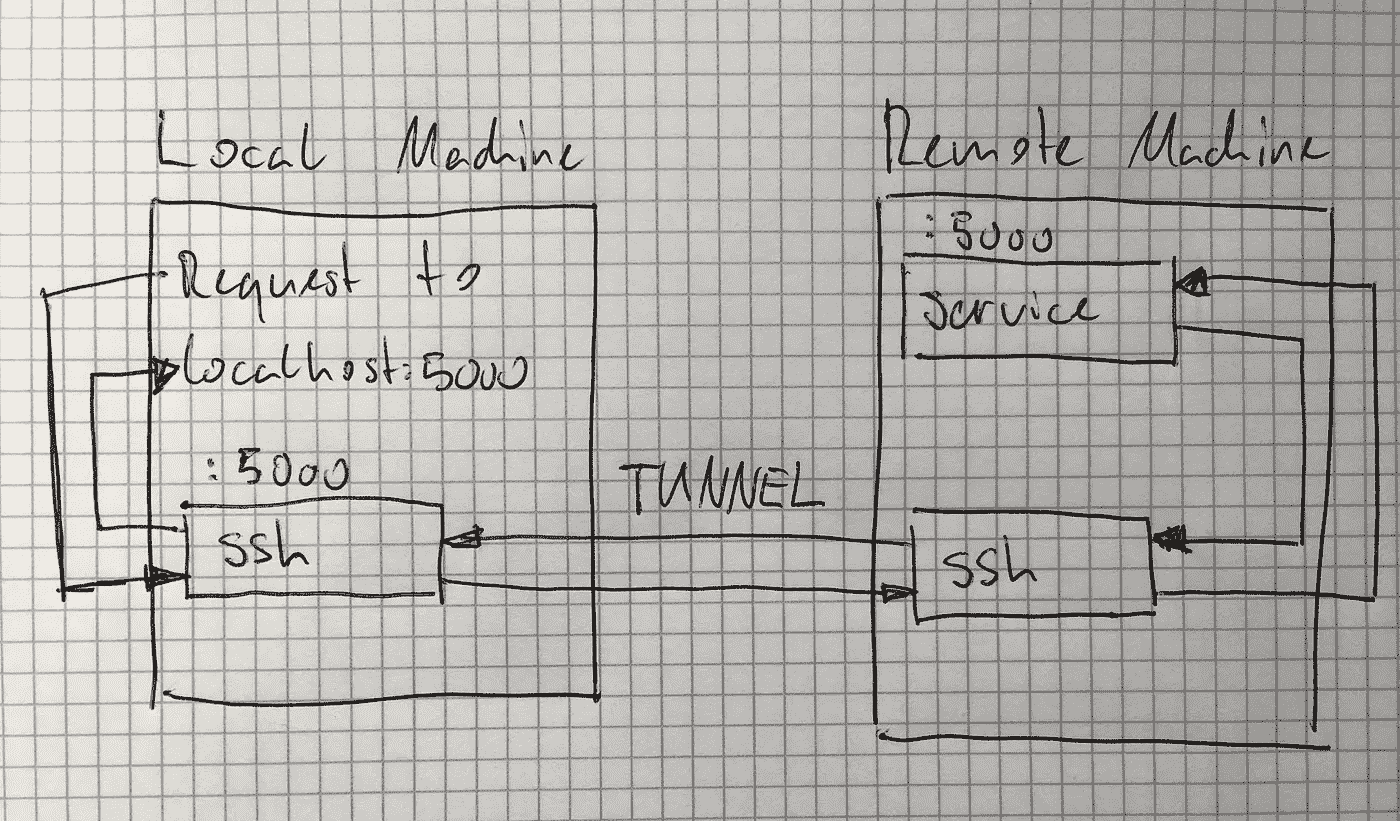 Local Machine
Request to
localhost:5000
:5000
ssh
TUNNEL
Remote Machine
:5000
Service
ssh